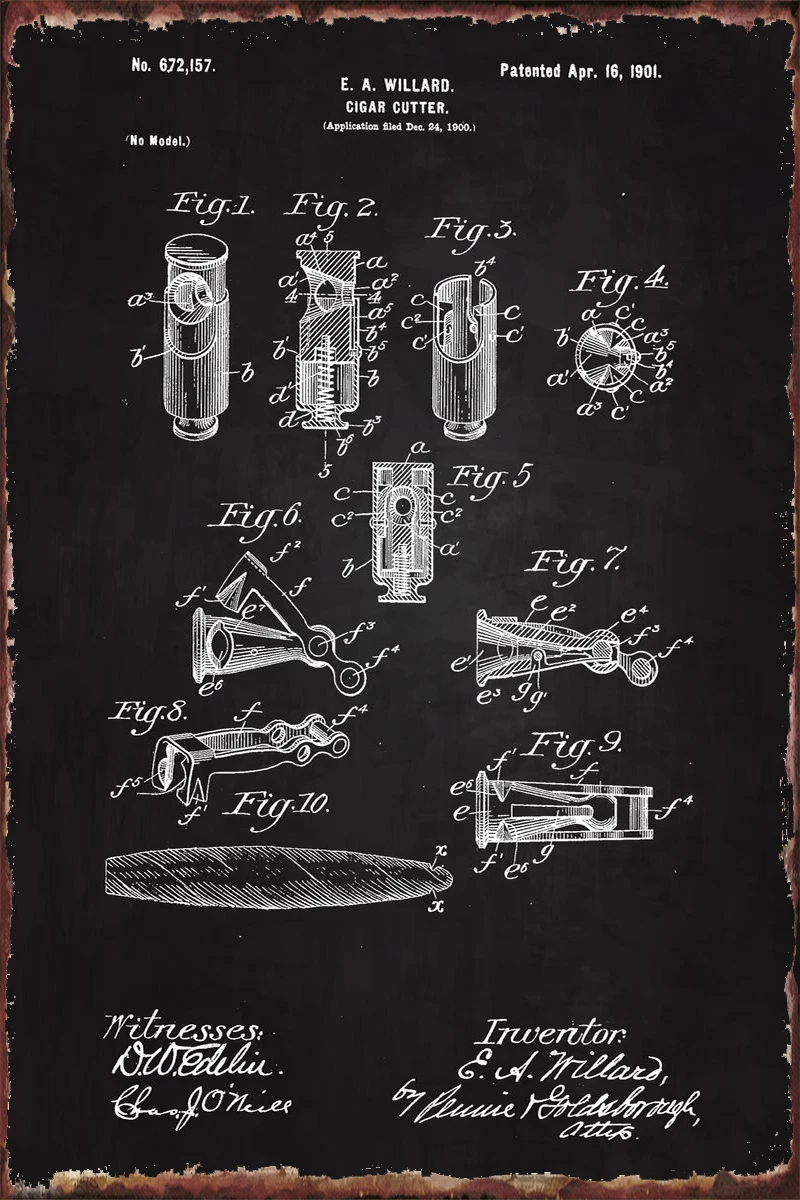 No. 672,157.
Patented Apr. 16, 1901.
E. A. WILLARD.
CIGAR CUTTER.
(Application filed Dec. 24, 1900.)
(No Model.)
Fig. 1.
a³
b'
b
Fig. 2.
a⁴ 5
a
a'
a²
4 4
a⁵
b⁴
b'
b⁵
b
d'
d
b³
b⁶
5
Fig. 3.
b⁴
c c
c²
c' c'
Fig. 4.
c'
a c
b' a³
b⁵
b⁴
a' a²
c
a³ c'
Fig. 5
a
c c
c² c²
b a'
Fig. 6.
f²
f
f'
e⁷
f³
f⁴
e⁶
Fig. 7.
e e² e⁴
f³
f⁴
e'
e³ g g'
Fig. 8.
f f⁴
f⁵
f'
Fig. 9.
f' f
e⁶
e f⁴
f' e⁶ g
Fig. 10.
x
x
Witnesses:
D.W. Edelin.
Chas. J. O'Neill
Inventor:
E. A. Willard,
by Pennie & Goldsborough,
Attys.